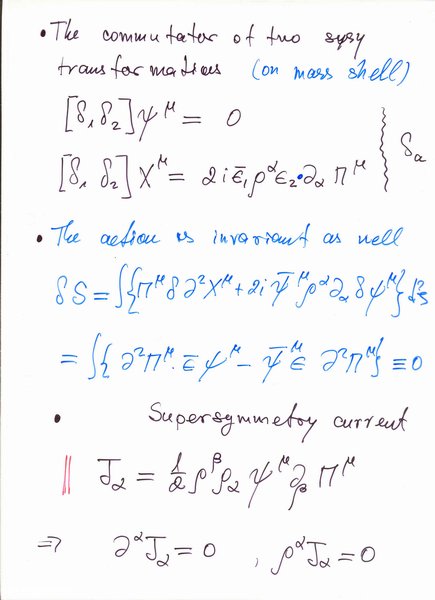 • The commutator of two susy
transformations (on mass shell)
[δ₁ δ₂] ψ^μ = 0
[δ₁ δ₂] X^μ = 2i ε̄₁ ρ^α ε₂ • ∂_α Π^μ
δ_a
• The action is invariant as well
δS = ∫{Π^μ δ ∂²X^μ + 2i ψ̄^μ ρ^α ∂_α δψ^μ} d²ξ
= ∫{ ∂²Π^μ · ε̄ ψ^μ − ψ̄^μ ε ∂²Π^μ} ≡ 0
• Supersymmetry current
|| J_α = 1/2 ρ^β ρ_α ψ^μ ∂_β Π^μ
⇒ ∂^α J_α = 0 , ρ^α J_α = 0